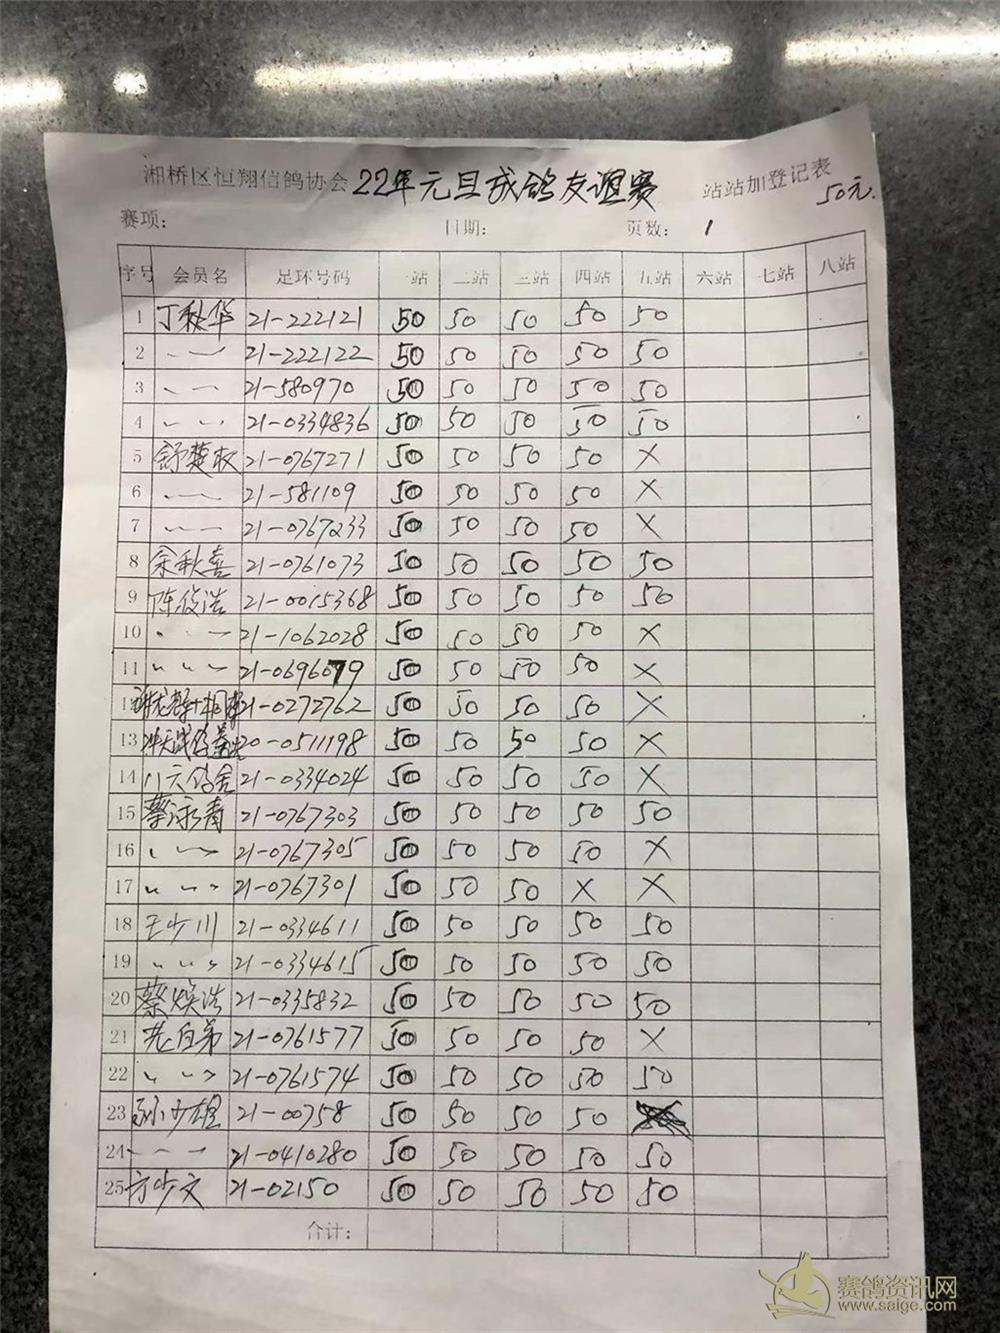 湘桥区恒翔信鸽协会 22年元旦成鸽友谊赛 站站加登记表
50元.
赛项: 日期: 页数: 1
序号 会员名 足环号码 一站 二站 三站 四站 五站 六站 七站 八站
1 丁秋华 21-222121 50 50 50 50 50
2 〃 21-222122 50 50 50 50 50
3 〃 21-580970 50 50 50 50 50
4 〃 21-0334836 50 50 50 50 50
5 舒楚 21-0767271 50 50 50 50 X
6 〃 21-581109 50 50 50 50 X
7 〃 21-0767233 50 50 50 50 X
8 余秋喜 21-0761073 50 50 50 50 50
9 陈俊浩 21-0015368 50 50 50 50 50
10 〃 21-1062028 50 50 50 50 X
11 〃 21-0696079 50 50 50 50 X
12 21-0272762 50 50 50 50 X
13 20-0511198 50 50 50 50 X
14 八六鸽舍 21-0334024 50 50 50 50 X
15 蔡泳青 21-0767303 50 50 50 50 50
16 〃 21-0767305 50 50 50 50 X
17 〃 21-0767301 50 50 50 X X
18 王少川 21-0334611 50 50 50 50 50
19 〃 21-0334615 50 50 50 50 50
20 蔡焕浩 21-0335832 50 50 50 50 50
21 自弟 21-0761577 50 50 50 50 X
22 〃 21-0761574 50 50 50 50 50
23 孙少雄 21-00758 50 50 50 50
24 〃 21-0410280 50 50 50 50 50
25 方少文 21-02150 50 50 50 50 50
合计:
赛鸽资讯网
www.saige.com